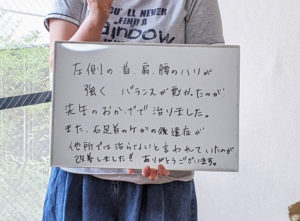 YOU'LL NEVER
FIND A
rainbow
左側の首、肩、腰のハリが
強く、バランスが悪かったのが
先生のおかげで治りました。
また、右足首のケガの後遺症が
他所では治らないと言われていたのが
改善しました!! ありがとうございます。